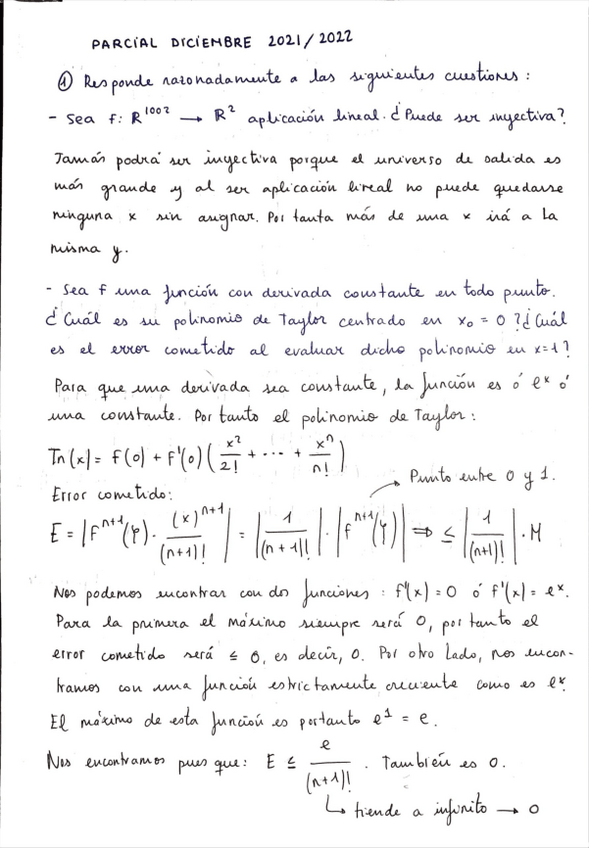 PARCIAL DICIEMBRE 2021/2022
① Responde razonadamente a las siguientes cuestiones:
- Sea f: R¹⁰⁰² → R² aplicación lineal. ¿Puede ser inyectiva?
Jamás podrá ser inyectiva porque el universo de salida es
más grande y al ser aplicación lineal no puede quedarse
ninguna x sin asignar. Por tanto más de una x irá a la
misma y.
- Sea f una función con derivada constante en todo punto.
¿Cuál es su polinomio de Taylor centrado en x₀ = 0? ¿Cuál
es el error cometido al evaluar dicho polinomio en x=1?
Para que una derivada sea constante, la función es ó eˣ ó
una constante. Por tanto el polinomio de Taylor:
Tn(x) = f(0) + f'(0) (x²/2! + ··· + xⁿ/n!)
→ Punto entre 0 y 1.
Error cometido:
E = |fⁿ⁺¹(φ) · (x)ⁿ⁺¹/(n+1)!| = |1/(n+1)!| · |fⁿ⁺¹(φ)| ⇒ ≤ |1/(n+1)!| · M
Nos podemos encontrar con dos funciones: f'(x) = 0 ó f'(x) = eˣ.
Para la primera el máximo siempre será 0, por tanto el
error cometido será ≤ 0, es decir, 0. Por otro lado, nos encon-
tramos con una función estrictamente creciente como es eˣ.
El máximo de esta función es por tanto e¹ = e.
Nos encontramos pues que: E ≤ e/(n+1)! . También es 0.
↳ tiende a infinito → 0